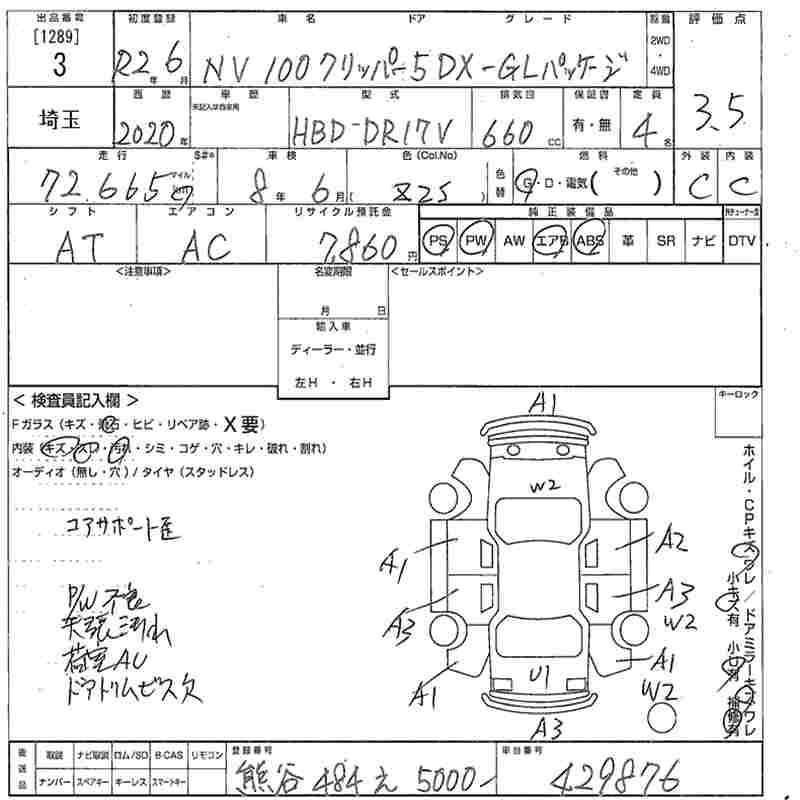 出品番号 初度登録 車名 ドア グレード 駆動 評価点
[1289]
3
R2年 6月 NV100クリッパー 5 DX-GLパッケージ 2WD ・ 4WD
3.5
西暦 車歴 型式 排気量 保証書 定員
埼玉 2020年 未記入は自家用 HBD-DR17V 660cc 有・無 4名
走行 S#* 車検 色(Col.No) 燃料 外装 内装
72,665 マイル 8年 6月 (Z2S) 色替 G・D・電気( その他 ) C C
シフト エアコン リサイクル預託金 純正装備品
AT AC 7,860円 PS PW AW エアB ABS 革 SR ナビ DTV
<注意事項> 名変期限 <セールスポイント>
月 日
輸入車
ディーラー・並行
左H ・ 右H
< 検査員記入欄 > キーロック
Fガラス(キズ・飛石・ヒビ・リペア跡・X要)
内装(キズ・スレ・汚れ・シミ・コゲ・穴・キレ・破れ・割れ)
オーディオ(無し・穴)/タイヤ(スタッドレス)
コアサポート歪
P/W不良
天張汚れ
荷室AU
ドアトリムビス欠
A1
W2
A1
A2
A3
A3
W2
A1
U1
A1
W2
A3
ホイル・CPキズワレ/ドアミラーキズワレ
小キズ有 小凹有 補修有
後送品 取説 ナビ取説 ロム/SD B-CAS リモコン 登録番号 車台番号
ナンバー スペアキー キーレス スマートキー 熊谷 484 え 5000 429876